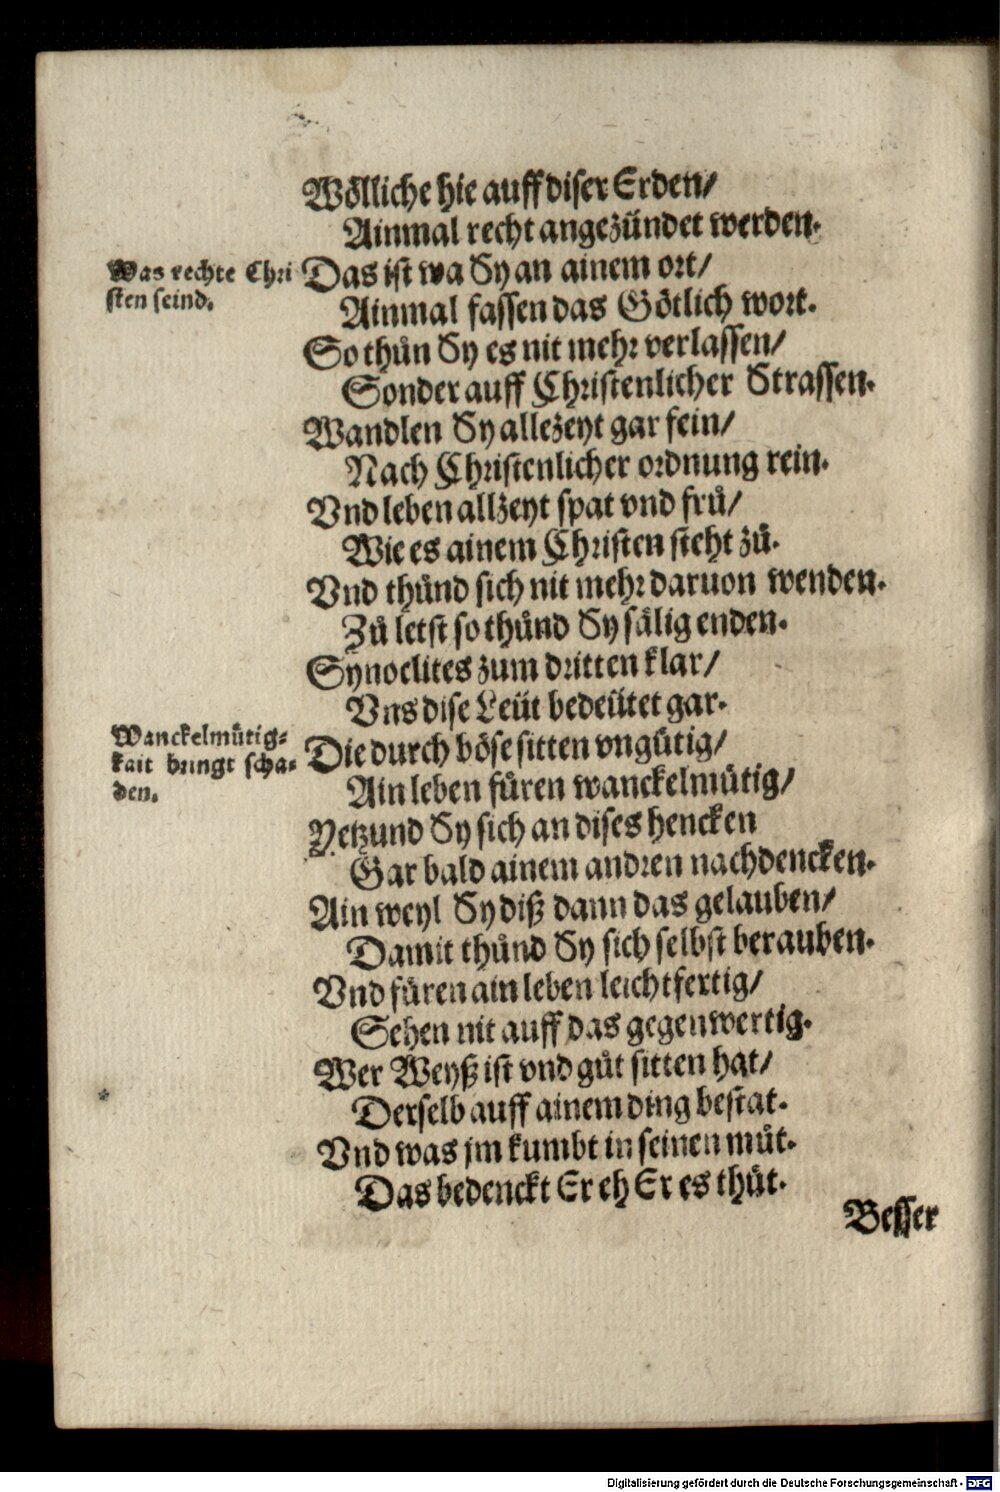 Wölliche hie auff diser Erden/
Ainmal recht angezündet werden.
Was rechte Chri
sten seind.
Das ist wa Sy an ainem ort/
Ainmal fassen das Götlich wort.
So thůn Sy es nit mehr verlassen/
Sonder auff Christenlicher Strassen.
Wandlen Sy allezeyt gar fein/
Nach Christenlicher ordnung rein.
Vnd leben allzeyt spat vnd frů/
Wie es ainem Christen steht zů.
Vnd thůnd sich nit mehr daruon wenden.
Zů letst so thůnd Sy sälig enden.
Synoclites zum dritten klar/
Vns dise Leüt bedeütet gar.
Wanckelmůtig-
kait bringt scha-
den.
Die durch böse sitten vngütig/
Ain leben füren wanckelmütig/
Yetzund Sy sich an dises hencken
Gar bald ainem andren nachdencken.
Ain weyl Sy diß dann das gelauben/
Damit thůnd Sy sich selbst berauben.
Vnd füren ain leben leichtfertig/
Sehen nit auff das gegenwertig.
Wer Weyß ist vnd gůt sitten hat/
Derselb auff ainem ding bestat.
Vnd was jm kumbt in seinen můt.
Das bedenckt Er eh Er es thůt.
Besser
Digitalisierung gefördert durch die Deutsche Forschungsgemeinschaft - DFG